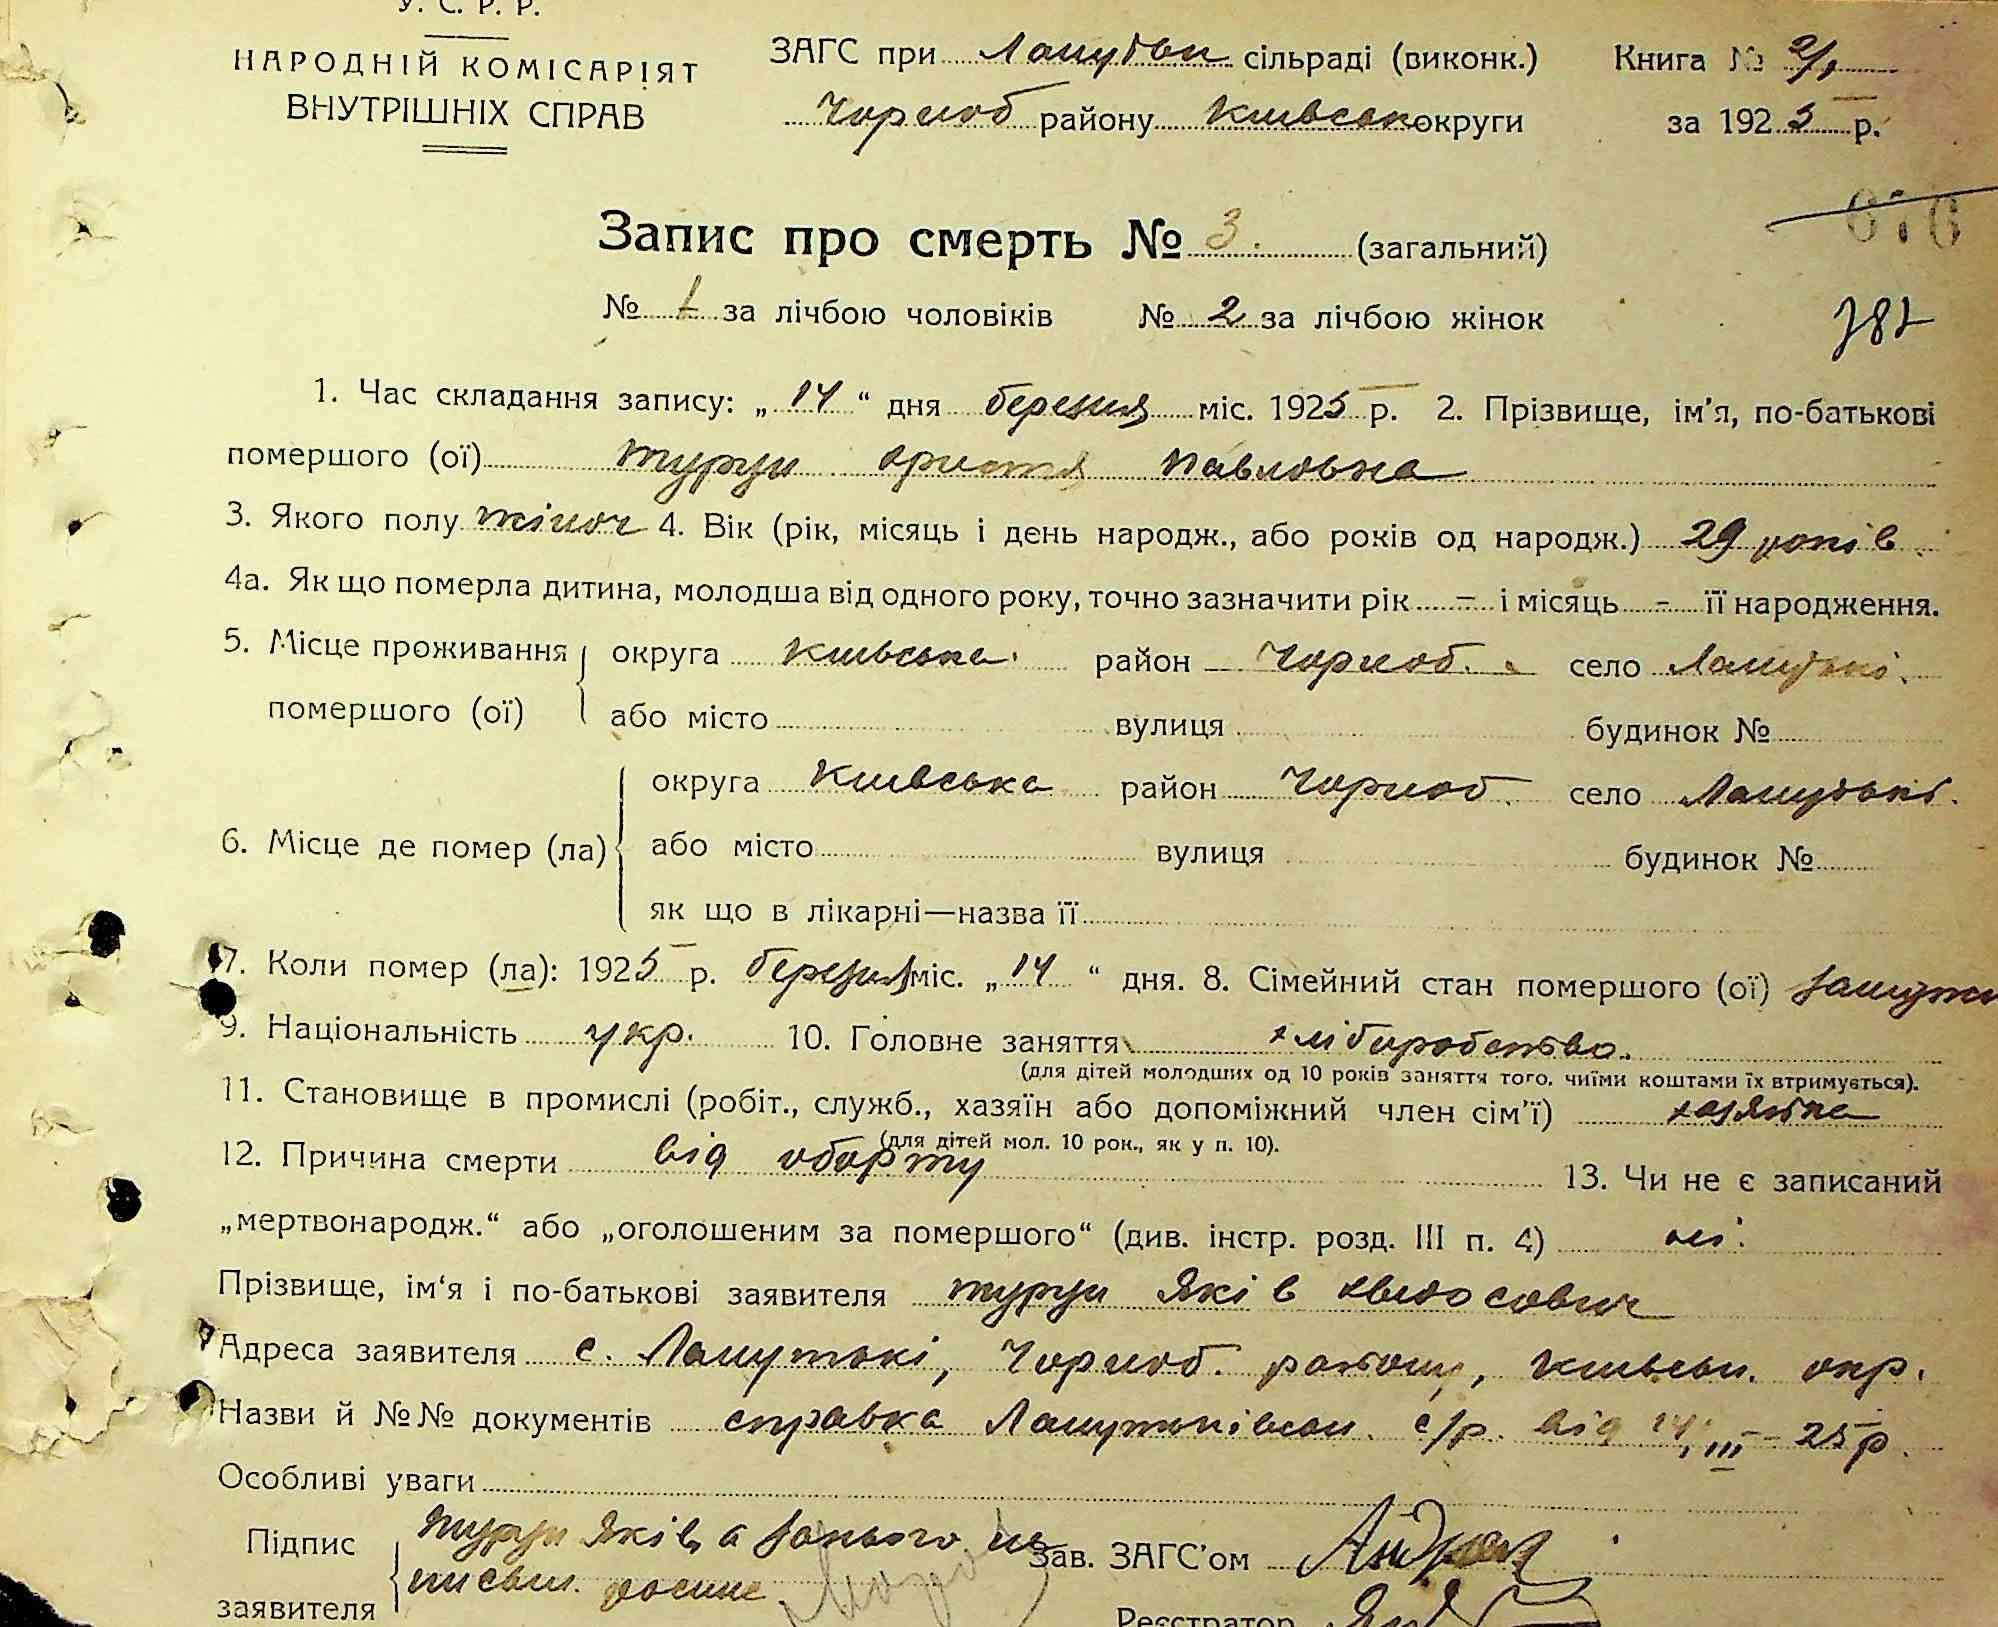 У. С. Р. Р.
НАРОДНІЙ КОМІСАРІЯТ
ВНУТРІШНІХ СПРАВ
ЗАГС при сільраді (виконк.)
Чорноб району Київськ округи
Книга № 2/1
за 1925 р.
Запис про смерть № 3. (загальний)
676
№ 1 за лічбою чоловіків № 2 за лічбою жінок
781
1. Час складання запису: „14“ дня березня міс. 1925 р. 2. Прізвище, ім'я, по-батькові
помершого (ої) Турун Павловна
3. Якого полу жіноч 4. Вік (рік, місяць і день народж., або років од народж.) 29 років.
4а. Як що померла дитина, молодша від одного року, точно зазначити рік – і місяць - її народження.
5. Місце проживання округа Київська район Чорноб. село Лапутькі.
помершого (ої) або місто вулиця будинок №
округа Київська район Чорноб. село Лапутькі.
6. Місце де помер (ла) або місто вулиця будинок №
як що в лікарні—назва її
7. Коли помер (ла): 1925 р. березня міс. „14“ дня. 8. Сімейний стан помершого (ої) замужн
9. Національність укр. 10. Головне заняття хліборобство.
(для дітей молодших од 10 років заняття того, чиїми коштами їх втримується).
11. Становище в промислі (робіт., служб., хазяїн або допоміжний член сім'ї) хазяйка
(для дітей мол. 10 рок., як у п. 10).
12. Причина смерти від оборту 13. Чи не є записаний
„мертвонародж.“ або „оголошеним за помершого“ (див. інстр. розд. III п. 4) ні.
Прізвище, ім'я і по-батькові заявителя Турун Яків
Адреса заявителя с. Лапутькі, Чорноб. району, Київськ. окр.
Назви й №№ документів справка Лапутьківськ. с/р. від 14/III – 25 р.
Особливі уваги
Підпис Турун Яків а за нього не
заявителя письм. росписс
Зав. ЗАГС'ом
Реєстратор